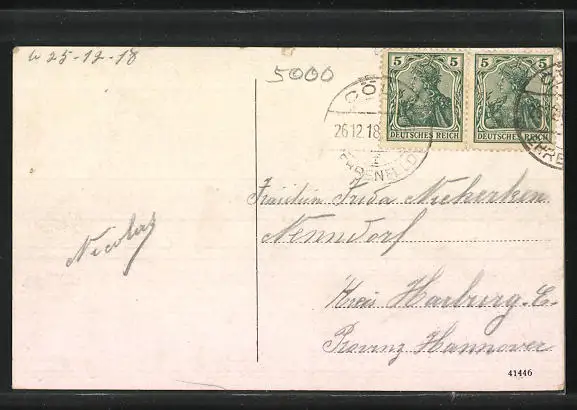 25-12-18
5000
5
5
DEUTSCHES REICH
DEUTSCHES REICH
CÖ
26.12.18
EHRENFELD
EHRE
Fräulein Frida
Nenndorf
Kreis Harburg. E.
Provinz Hannover
Nicolas
41446